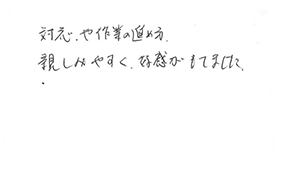 対応、や作業の進め方、
親しみやすく、好感がもてました、